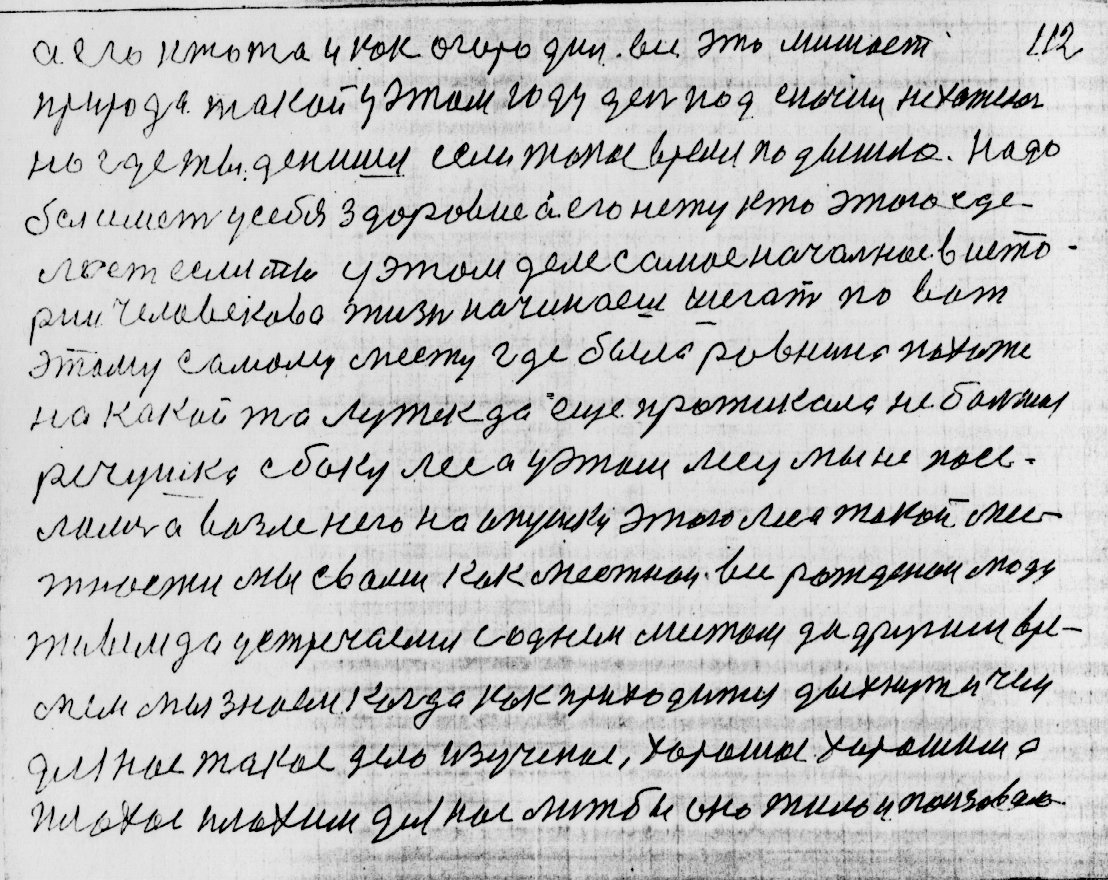 а его ктота и как огородил. все это мишает 112
природа такой у этом году деп под спочий не хотела
но где ты денишся если такое время подышло. Надо
бел имет у себя здоровие а его нету кто этого сде-
лает если ты у этом деле самое началное в исто-
рии человекова жизн начинаеш шегат по вот
этому самому месту где была ровнина похоже
на какой та лужек да еще протикала не болшая
речушка с боку леса у этом лесу мы не посе-
лилис а возле него на опушки этого леса такой мес-
тности мы с вами как местнои. все рожденои люди
живем да устречаемся с однем местом да другим вре-
мем мы знаем когда как приходится дыхнути чем
для нас такое дело изученое, хорошое хорошим а
плохое плохим для нас лиш бы оно жило и ползовало